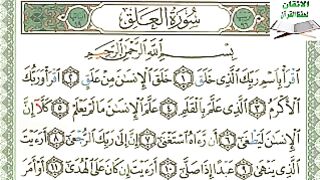 الإتقان
لحفظ القرآن
سُورَةُ العَلَقِ
بِسْمِ اللَّهِ الرَّحْمَٰنِ الرَّحِيمِ
اقْرَأْ بِاسْمِ رَبِّكَ الَّذِي خَلَقَ ١ خَلَقَ الْإِنسَٰنَ مِنْ عَلَقٍ ٢ اقْرَأْ وَرَبُّكَ
الْأَكْرَمُ ٣ الَّذِي عَلَّمَ بِالْقَلَمِ ٤ عَلَّمَ الْإِنسَٰنَ مَا لَمْ يَعْلَمْ ٥ كَلَّا إِنَّ
الْإِنسَٰنَ لَيَطْغَىٰ ٦ أَن رَّءَاهُ اسْتَغْنَىٰ ٧ إِنَّ إِلَىٰ رَبِّكَ الرُّجْعَىٰ ٨ أَرَءَيْتَ
الَّذِي يَنْهَىٰ ٩ عَبْدًا إِذَا صَلَّىٰ ١٠ أَرَءَيْتَ إِن كَانَ عَلَى الْهُدَىٰ ١١ أَوْ أَمَرَ